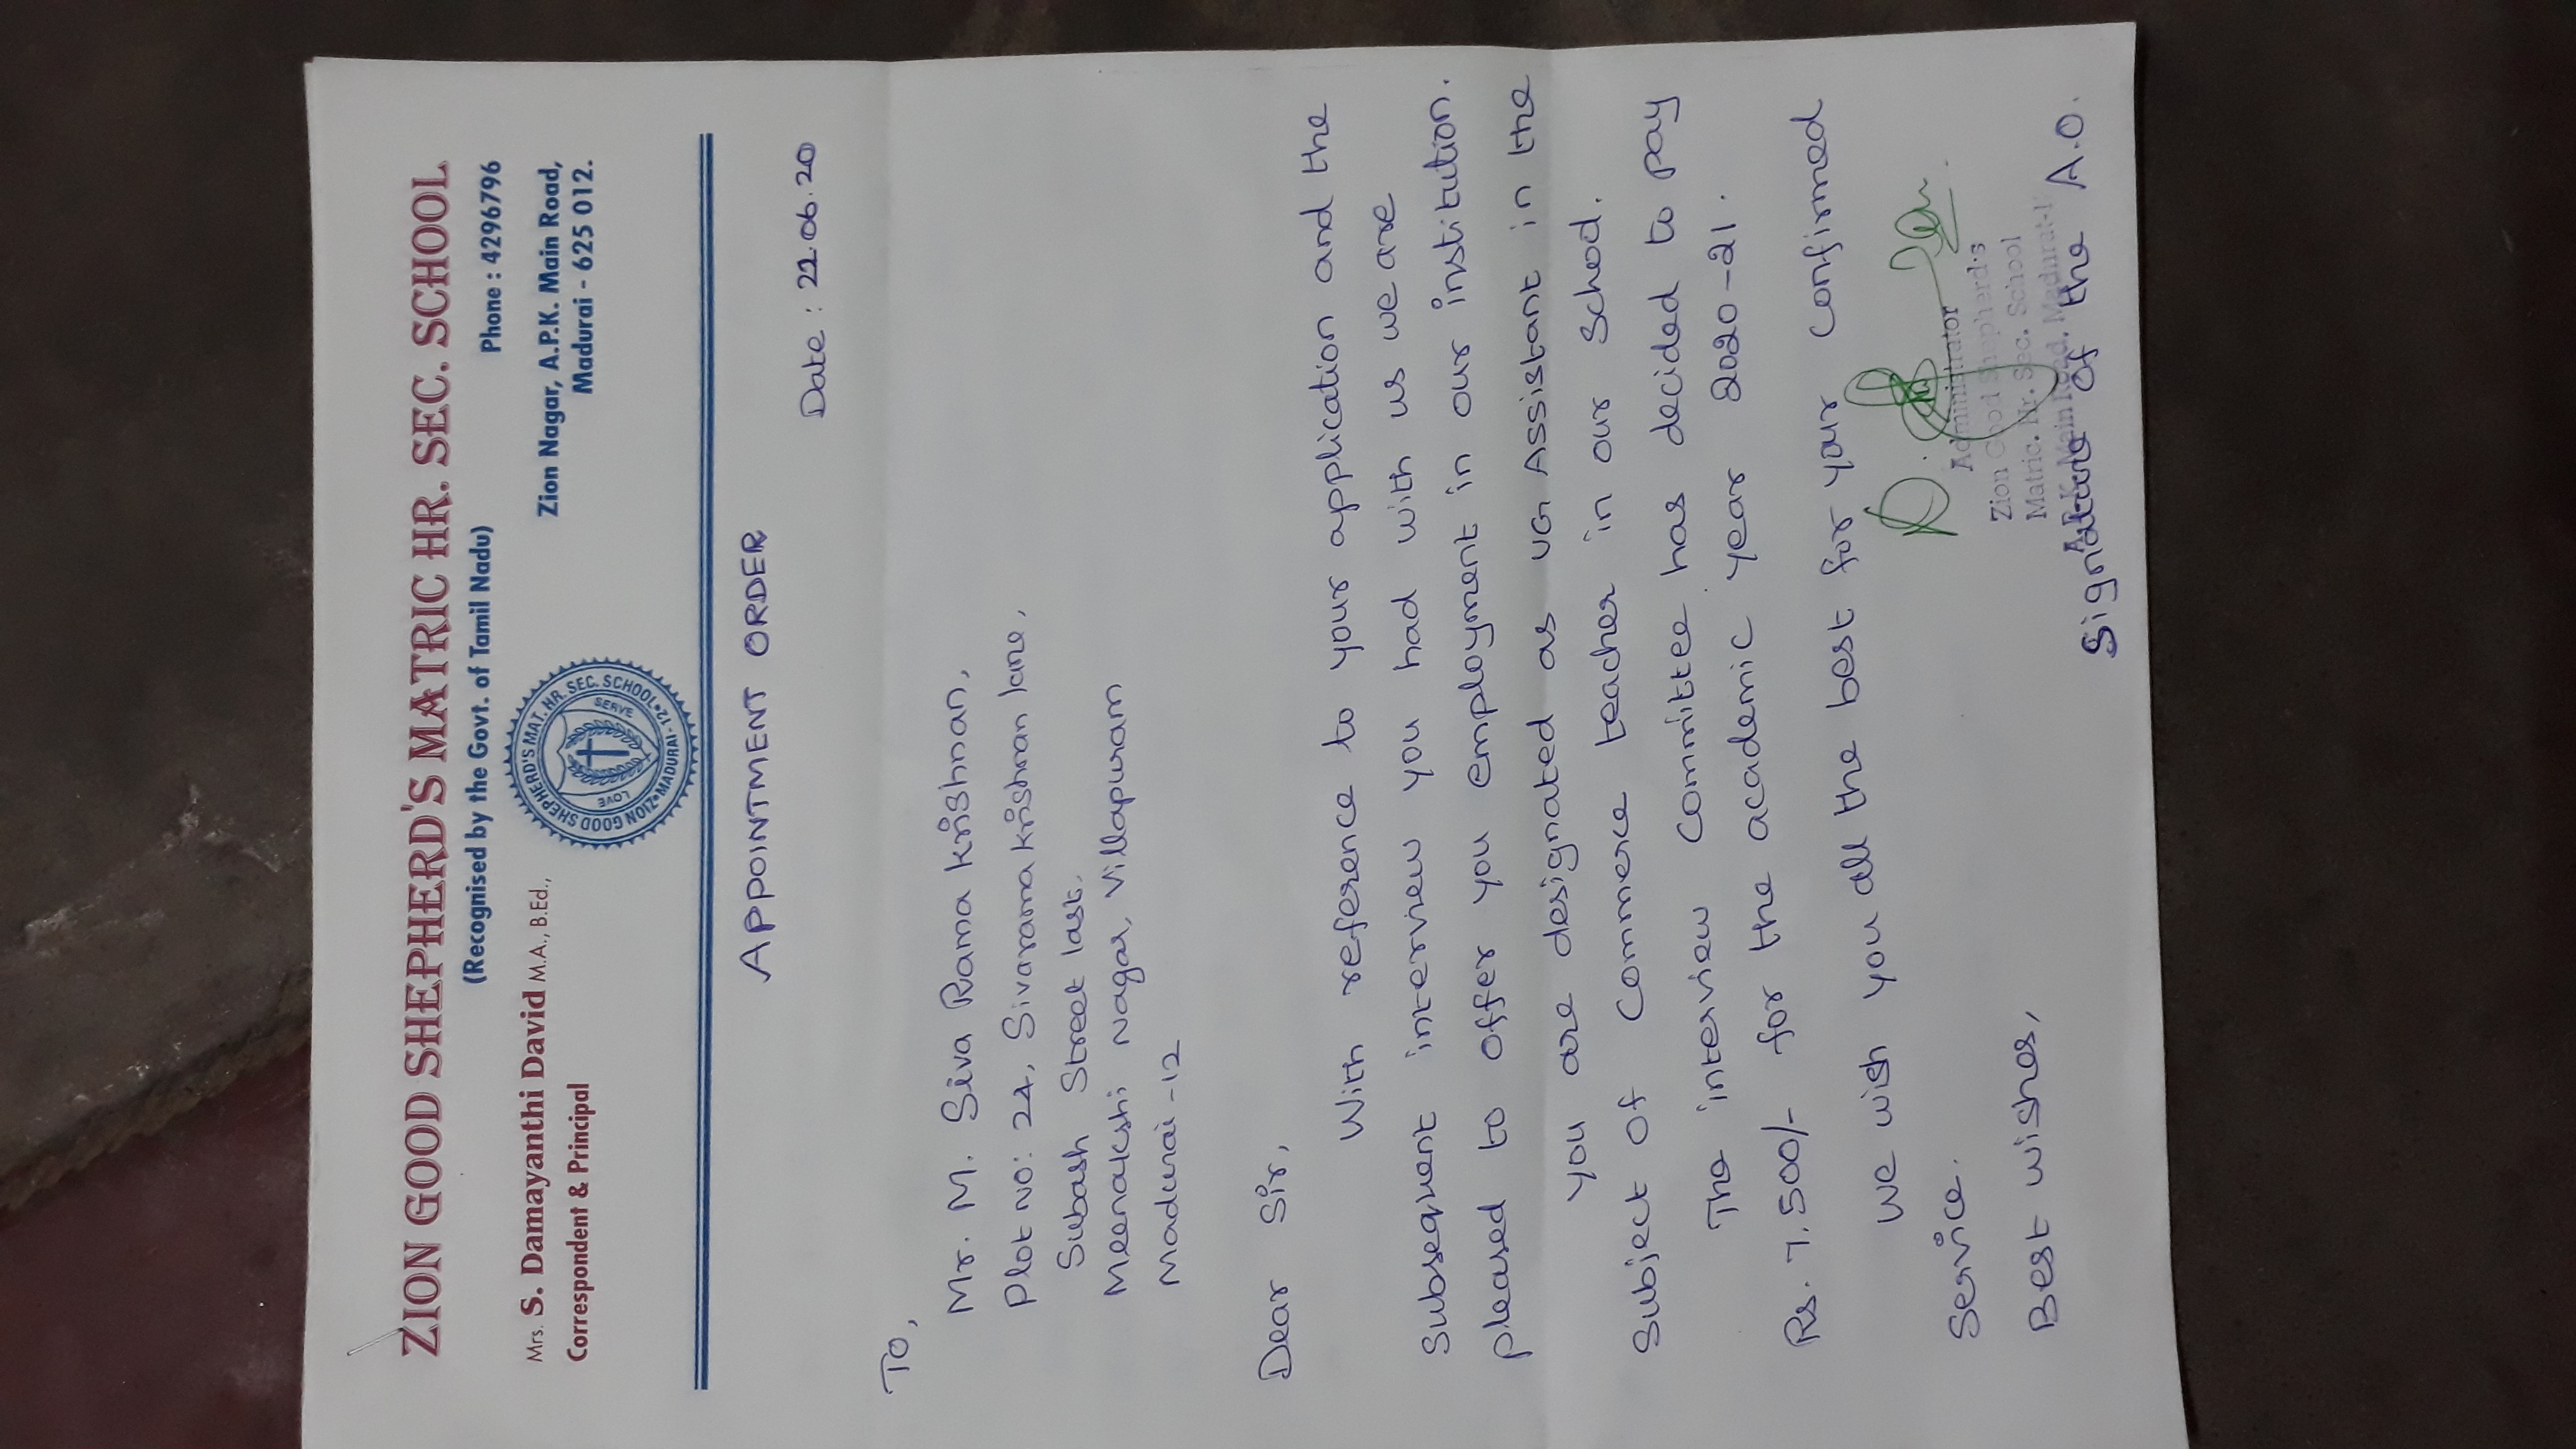 ZION GOOD SHEPHERD'S MATRIC HR. SEC. SCHOOL
(Recognised by the Govt. of Tamil Nadu)
Phone : 4296796
Mrs. S. Damayanthi David M.A., B.Ed.,
Correspondent & Principal
ZION GOOD SHEPHERD'S MAT. HR. SEC. SCHOOL • MADURAI-12
LOVE
SERVE
Zion Nagar, A.P.K. Main Road,
Madurai - 625 012.
APPOINTMENT ORDER
Date : 22.06.20
To,
Mr. M. Siva Rama Krishnan,
Plot no: 24, Sivarama Krishnan lane,
Subash Street last,
Meenakshi Nagar, Villapuram
Madurai-12
Dear Sir,
With reference to your application and the
subsequent interview you had with us we are
pleased to offer you employment in our institution.
You are designated as UG Assistant in the
subject of Commerce teacher in our School.
The interview Committee has decided to pay
Rs. 7,500/- for the academic year 2020-21.
We wish you all the best for your confirmed
Service.
Best wishes,
Administrator
Zion Good Shepherd's
Matric. Hr. Sec. School
Main Road, Madurai-
Signature of the A.O.